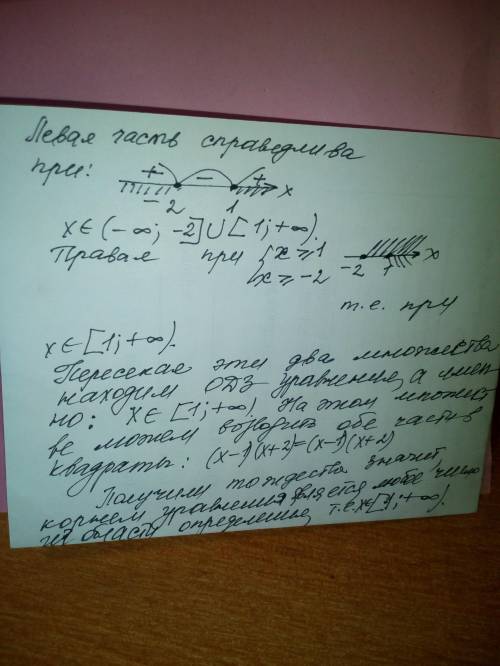 Левая часть справедлива
при:
+ - + x
-2 1
x∈(-∞; -2]∪[1;+∞).
Правая при {x ⩾ 1
x ⩾ -2
-2 1 x
т.е. при
x∈[1;+∞).
Пересекая эти два множества
находим ОДЗ уравнения, а имен-
но: x∈[1;+∞). На этом множест
ве можем возводить обе части в
квадраты: (x-1)(x+2)=(x-1)(x+2)
Получили тождество, значит,
корнем уравнения является любое число
из области определения, т.е. x∈[1;+∞).